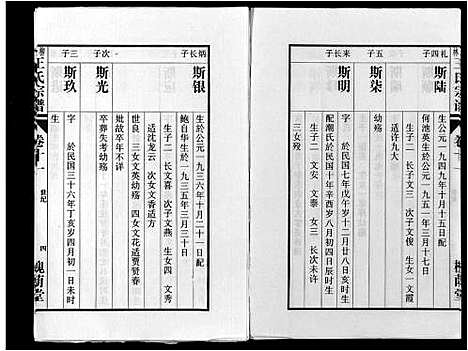 王氏宗谱
卷十一
槐荫堂
札四子
斯陆
生於公元一九四九年十月十五日配
何池英生於公元一九五一年三月十七日
生子二 长子文三 次子文俊 生女一文霞
适许九大
五子
斯柒
幼殇
来长子
斯明
字 於民国七年戊午岁十二月廿八日亥时生
配潮氏於民国十年辛酉岁八月初四日辰时生
生子二 文安 文泰 女三 长次未许
三女殁
炳长子
斯银
生於公元一九三六年十月二十一日配
鲍自华生於公元一九三五年三月三十日
生子二 长文喜 次子文燕 生女四 文秀
适沈龙云 次女文香适方
世良 三女文英幼殇 四女文花适贾贤春
次子
斯光
妣故卒年不详
卒葬失考幼殇
三子
斯玖
字 於民国三十六年丁亥岁四月初一日未时
生
王氏宗谱
卷十一
世纪
四
槐荫堂